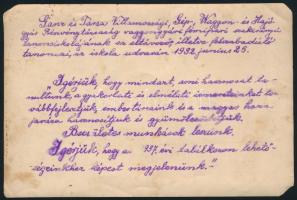 Ganz és Társa Villamossági, Gép-, Waggon- és Hajó-
gyár Részvénytársaság vaggongyári fémipari szakirányú
tanonciskolájának ez évi végző, illetve felszabaduló
tanoncai, az iskola udvarán 1932. június 25.
Igérjük, hogy mindazt, ami hasznosat ta-
nultunk, a gyakorlati és elméleti ismereteinket to-
vábbfejlesztjük, embertársaink és a magyar haza
javára hasznosítjuk és gyümölcsöztetjük.
Becsületes munkások leszünk.
Igérjük, hogy az 1937. évi találkozón lehető-
ségeinkhez képest megjelenünk."